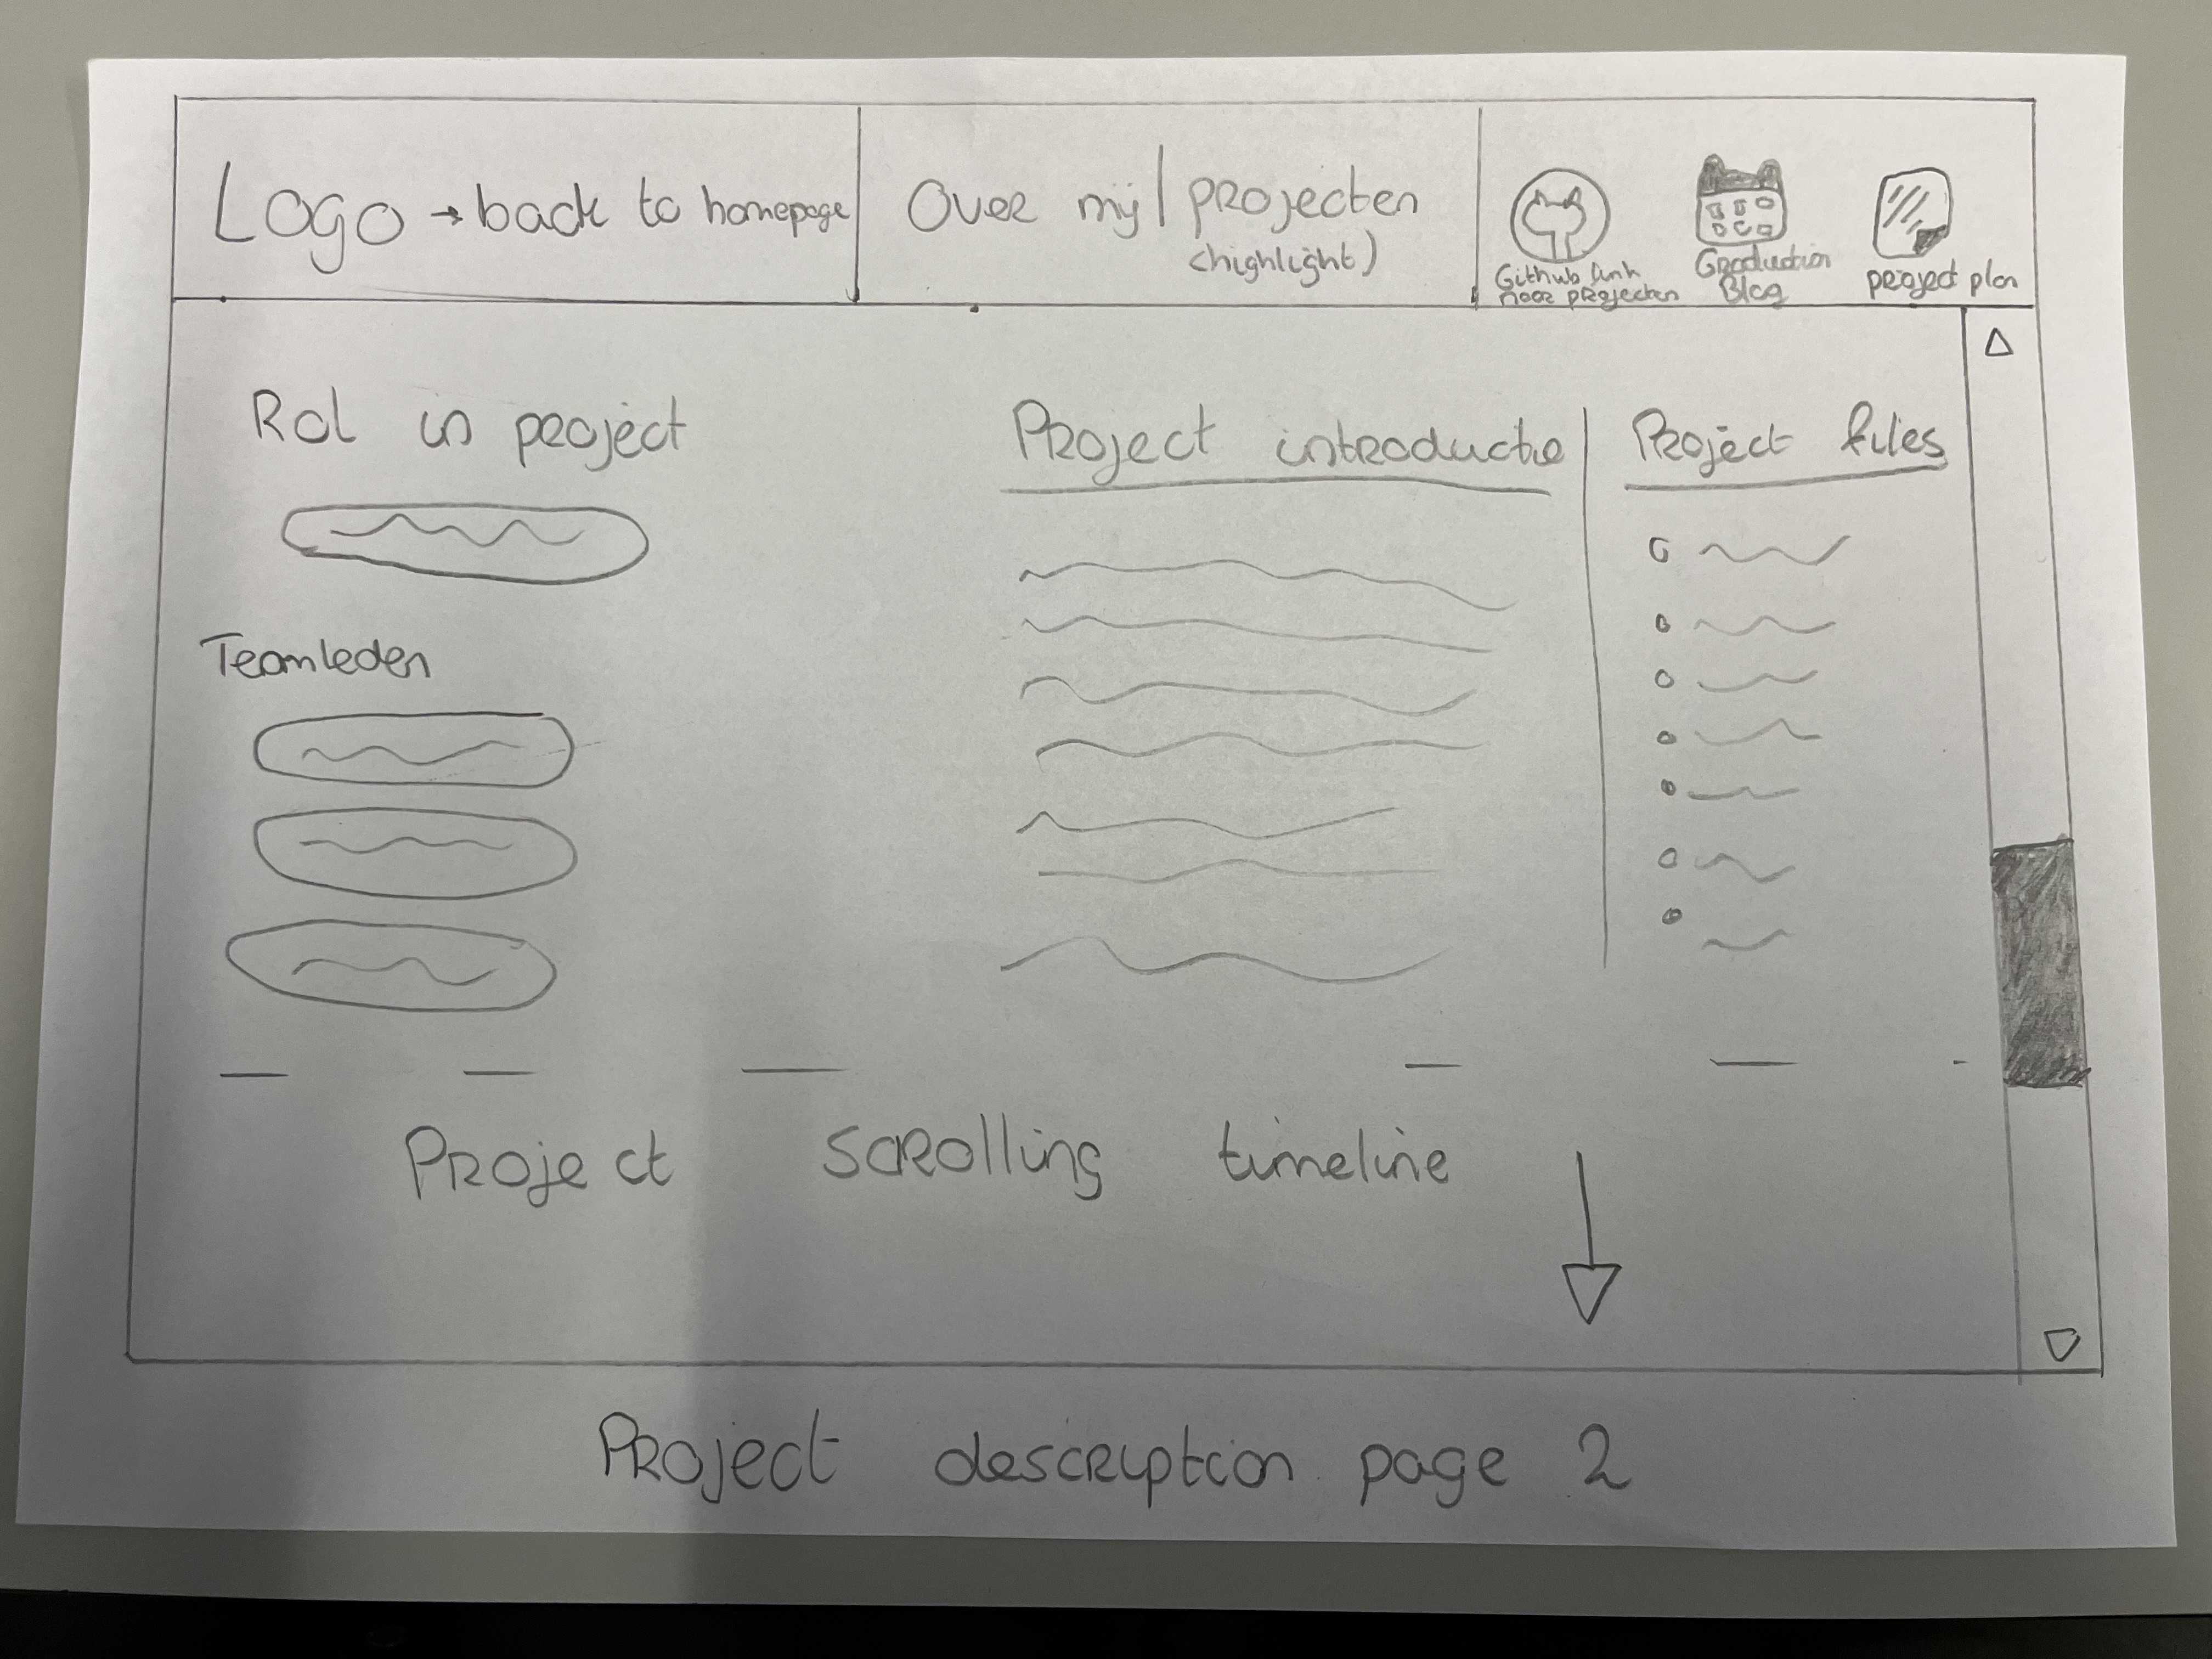 Logo → back to homepage
Over mij
projecten
(highlight)
Github link
naar projecten
Graduation
Blog
project plan
Rol in project
Teamleden
Project introductie
Project files
Project scrolling timeline
Project description page 2